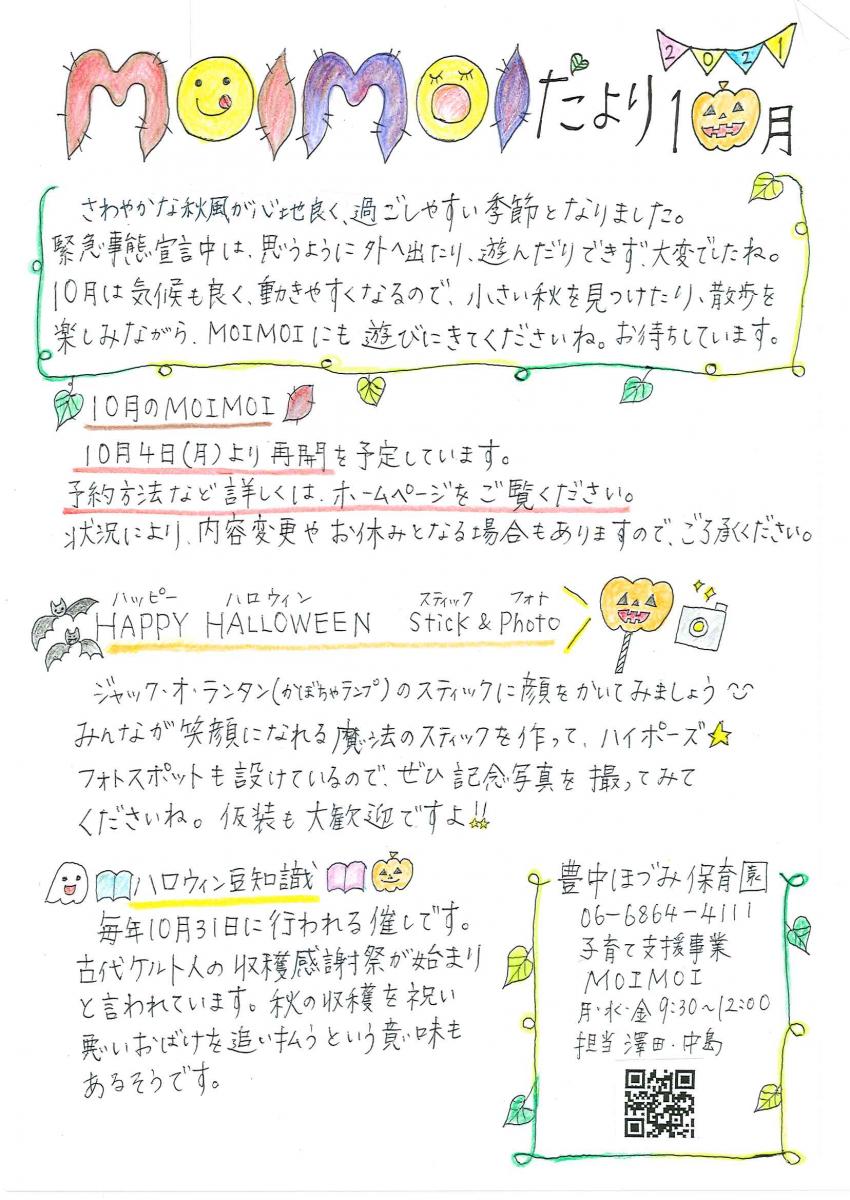 2021
MOIMOIだより10月
さわやかな秋風が心地良く、過ごしやすい季節となりました。
緊急事態宣言中は、思うように外へ出たり、遊んだりできず、大変でしたね。
10月は気候も良く、動きやすくなるので、小さい秋を見つけたり、散歩を
楽しみながら、MOIMOIにも遊びにきてくださいね。お待ちしています。
10月のMOIMOI
10月4日(月)より再開を予定しています。
予約方法など詳しくは、ホームページをご覧ください。
状況により、内容変更やお休みとなる場合もありますので、ご了承ください。
ハッピー ハロウィン スティック フォト
HAPPY HALLOWEEN Stick & Photo
ジャック・オ・ランタン(かぼちゃランプ)のスティックに顔をかいてみましょう
みんなが笑顔になれる魔法のスティックを作って、ハイポーズ★
フォトスポットも設けているので、ぜひ記念写真を撮ってみて
くださいね。仮装も大歓迎ですよ!!
ハロウィン豆知識
毎年10月31日に行われる催しです。
古代ケルト人の収穫感謝祭が始まり
と言われています。秋の収穫を祝い
悪いおばけを追い払うという意味も
あるそうです。
豊中ほづみ保育園
06-6864-4111
子育て支援事業
MOIMOI
月・水・金9:30～12:00
担当 澤田・中島